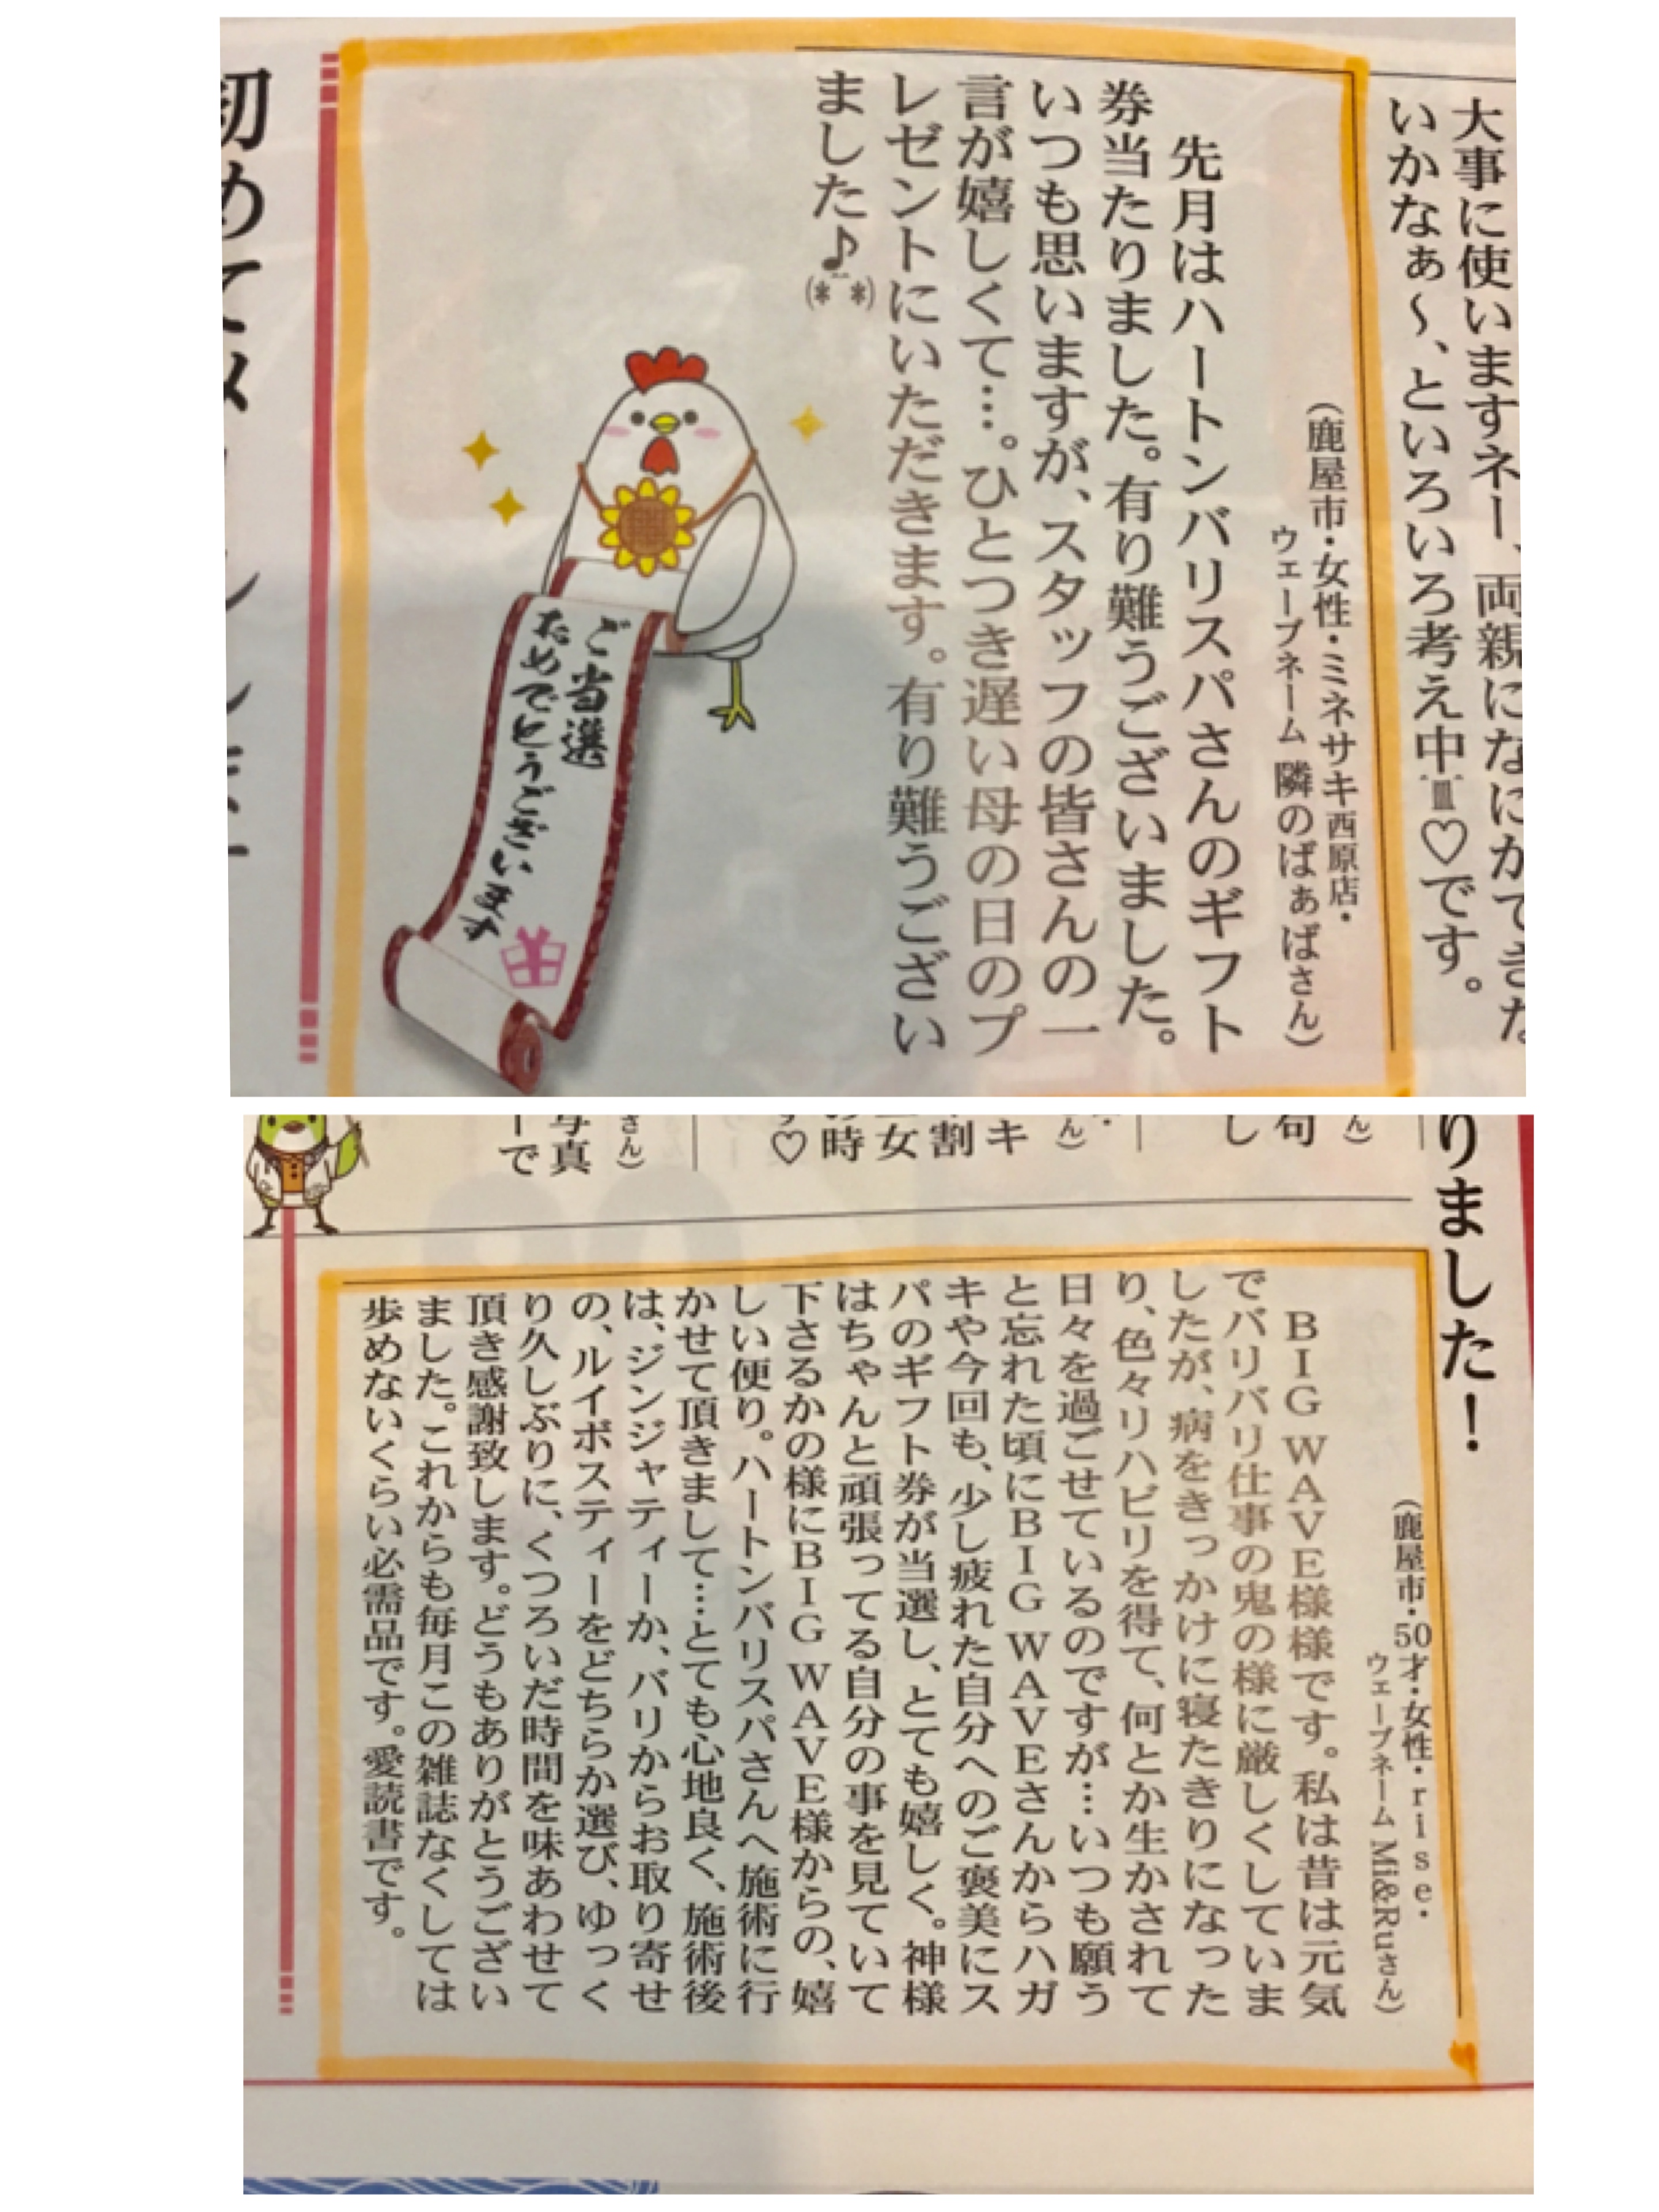 大事に使いますネー、両親になにかできな
いかなぁ～、といろいろ考え中♡です。
(鹿屋市・女性・ミネサキ西原店・
ウェーブネーム 隣のばぁばさん)
先月はハートンバリスパさんのギフト
券当たりました。有り難うございました。
いつも思いますが、スタッフの皆さんの一
言が嬉しくて…。ひとつき遅い母の日のプ
レゼントにいただきます。有り難うござい
ました♪(*^^*)
ご当選
おめでとうございます
初めて
りました！
句
し
ん)
キ
割
女
の時
す♡
さん)
写真
ーで
(鹿屋市・50才・女性・rise・
ウェーブネーム Mi&Ruさん)
BIG WAVE様様です。私は昔は元気
でバリバリ仕事の鬼の様に厳しくしていま
したが、病をきっかけに寝たきりになった
り、色々リハビリを得て、何とか生かされて
日々を過ごせているのですが…いつも願う
と忘れた頃にBIG WAVEさんからハガ
キや今回も、少し疲れた自分へのご褒美にス
パのギフト券が当選し、とても嬉しく。神様
はちゃんと頑張ってる自分の事を見ていて
下さるかの様にBIG WAVE様からの、嬉
しい便り。ハートンバリスパさんへ施術に行
かせて頂きまして…とても心地良く、施術後
は、ジンジャティーか、バリからお取り寄せ
の、ルイボスティーをどちらか選び、ゆっく
り久しぶりに、くつろいだ時間を味あわせて
頂き感謝致します。どうもありがとうござい
ました。これからも毎月この雑誌なくしては
歩めないくらい必需品です。愛読書です。